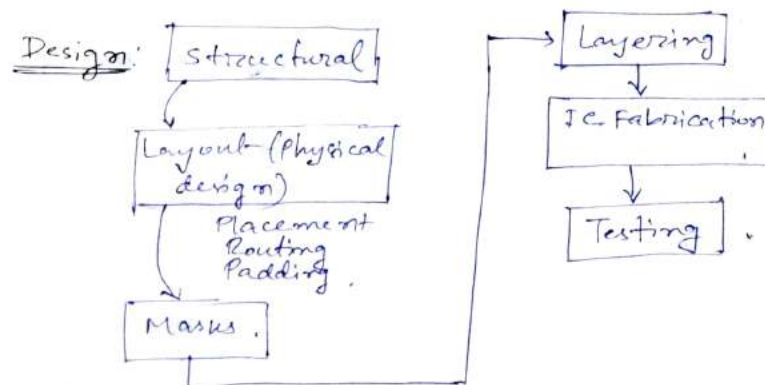 Design:
Structural
Layout (Physical
design)
Placement
Routing
Padding.
Masks.
Layering
IC Fabrication
.
Testing
.